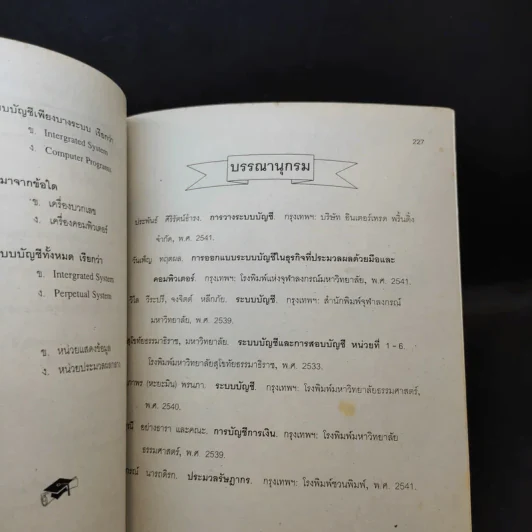 บบบัญชีเพียงบางระบบ เรียกว่า
ข. Intergrated System
ง. Computer Programs
มาจากข้อใด
ข. เครื่องบวกเลข
ง. เครื่องคอมพิวเตอร์
บบบัญชีทั้งหมด เรียกว่า
ข. Intergrated System
ง. Perpetual System
ข. หน่วยแสดงข้อมูล
ง. หน่วยประมวลผลกลาง
227
บรรณานุกรม
ประพันธ์ ศิริรัตน์ธำรง. การวางระบบบัญชี. กรุงเทพฯ: บริษัท อินเตอร์เทรด พริ้นติ้ง
จำกัด, พ.ศ. 2541.
วันเพ็ญ กฤตผล. การออกแบบระบบบัญชีในธุรกิจที่ประมวลผลด้วยมือและ
คอมพิวเตอร์. กรุงเทพฯ: โรงพิมพ์แห่งจุฬาลงกรณ์มหาวิทยาลัย, พ.ศ. 2541.
วีระปรี, จงจิตต์ หลีกภัย. ระบบบัญชี. กรุงเทพฯ: สำนักพิมพ์จุฬาลงกรณ์
มหาวิทยาลัย, พ.ศ. 2539.
สุโขทัยธรรมาธิราช, มหาวิทยาลัย. ระบบบัญชีและการสอบบัญชี หน่วยที่ 1-6.
โรงพิมพ์มหาวิทยาลัยสุโขทัยธรรมาธิราช, พ.ศ. 2533.
(หะยะมิน) พรนภา. ระบบบัญชี. กรุงเทพฯ: โรงพิมพ์มหาวิทยาลัยธรรมศาสตร์,
พ.ศ. 2540.
อย่างธารา และคณะ. การบัญชีการเงิน. กรุงเทพฯ: โรงพิมพ์มหาวิทยาลัย
ธรรมศาสตร์, พ.ศ. 2539.
นารถดิรก. ประมวลรัษฎากร. กรุงเทพฯ: โรงพิมพ์ชวนพิมพ์, พ.ศ. 2541.